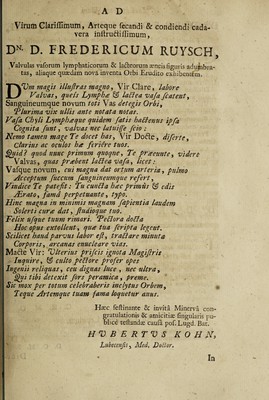 A D
Virum Clarissimum, Arteque secandi & condiendi cada-
vera instructissimum,
DN. D. FREDERICUM RUYSCH,
Valvulas vasorum lymphaticorum & lacteorum æneis figuris adumbran-
tas, aliaque quædam nova inventa Orbi Erudito exhibentem.
DUm magis illustras magno, Vir Clare, labore
Valvas, queis Lymphæ & lactea vasa scatent,
Sanguineumque novum toti Vas detegis Orbi,
Plurima vix ullis ante notata notas.
Vasa Chyli Lymphæque quidem satis hactenus ipsa
Cognita sunt, valvas nec latuisse sein:
Nemo tamen mage Te docet has, Vir Docte, diserte,
Clarius ac oculos hæ feriére tuos.
Quid? quod nunc primum quoque, Te præeunte, videre
Valvas, quas præbent lactea vasa, licet:
Vasque novum, cui magna dat ortum arteria, pulmo
Acceptum succum sanguineumque refert,
Vindice Te patescit: Tu cuncta hæc primus & edis
Ærato, famâ perpetuante, typo.
Hinc magna in minimis magnam sapientia laudem
Solerti curæ dat, studioque tuo.
Felix usque tuum rimari. Pectora docta
Hoc opus extollent, quæ tua scripta legent.
Scilicet haud parvus labor est, tractare minuta
Corporis, arcanas enucleare vias.
Macte Vir: Ulterius priscis ignota Magistris
Inquire, & culto pectore profer opes
Ingenii reliquas, ceu dignus luce, nec ultra,
Quà tibi detexit sors peramica, preme.
Sic mox per totum celebraberis inclytus Orbem,
Teque Artemque tuam fama loquetur anus.
Hæc festinante & invitâ Minervâ con-
gratulationis & amicitiæ singularis pu-
blicè testandæ causâ pos. Lugd. Bat.
HUBERTUS KOHN,
Lubecensis, Med. Doctor.
In